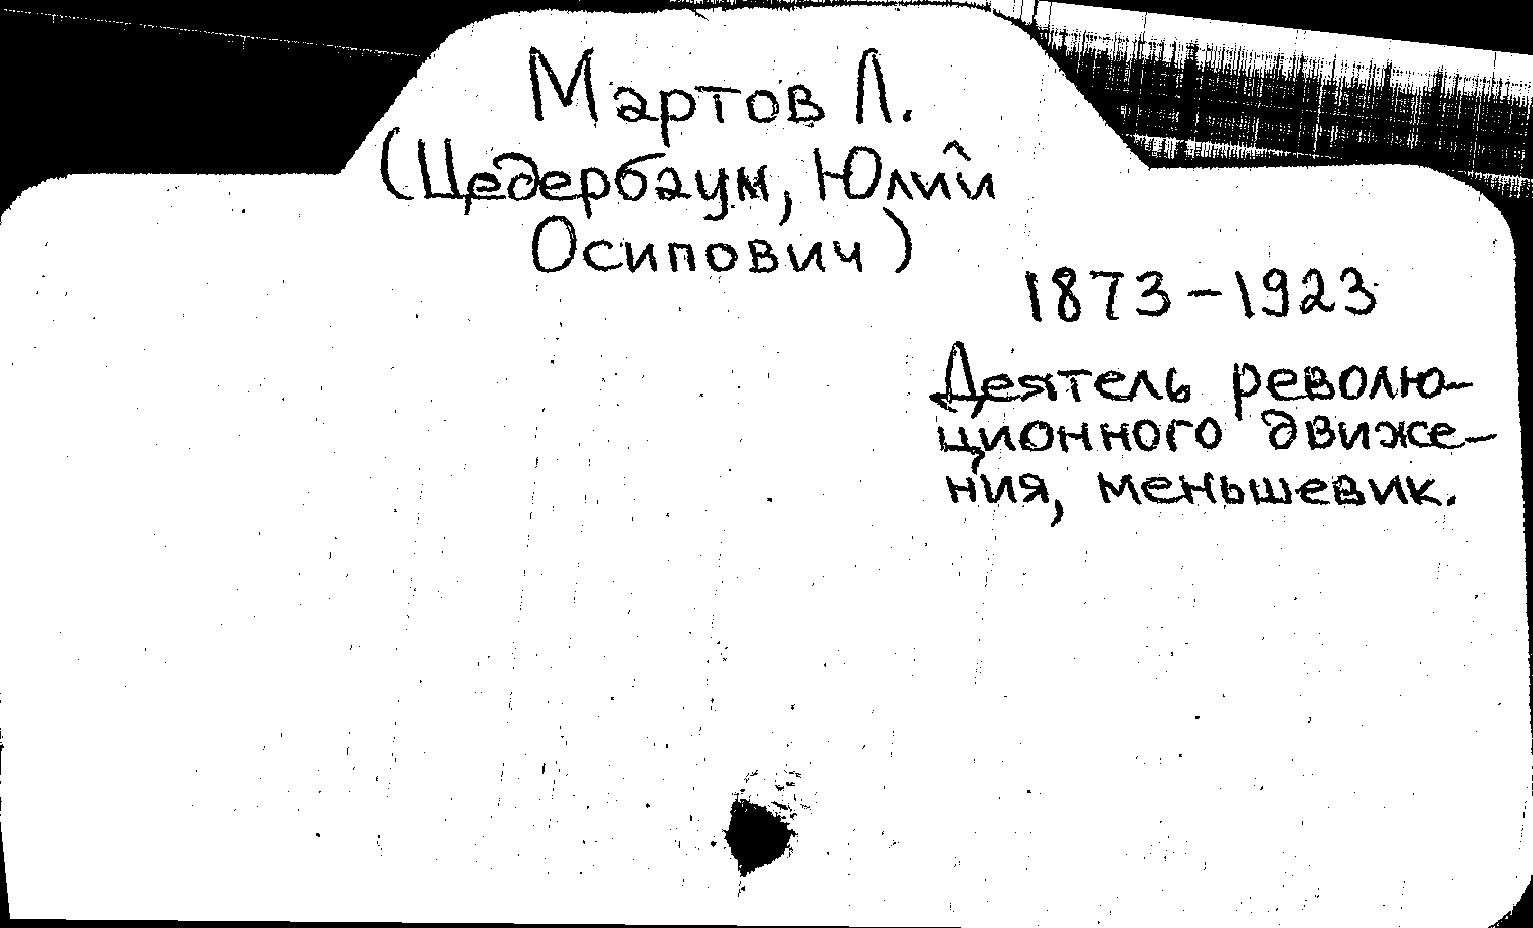 Мартов Л.
(Цедербаум, Юлий
Осипович)
1873-1923
Деятель револю-
ционного движе-
ния, меньшевик.